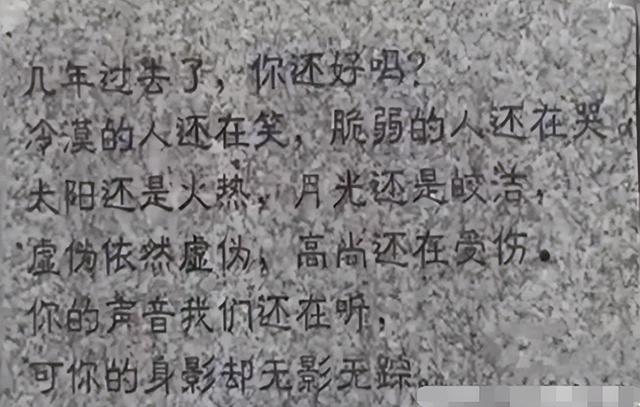 几年过去了，你还好吗？
冷漠的人还在笑，脆弱的人还在哭。
太阳还是火热，月光还是皎洁，
虚伪依然虚伪，高尚还在受伤。
你的声音我们还在听，
可你的身影却无影无踪。